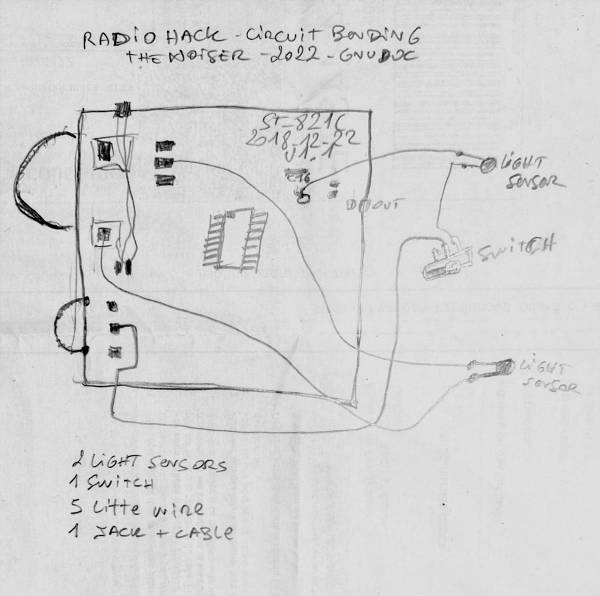 RADIO HACK - CIRCUIT BENDING
THE NOISER - 2022 - GNUDOC
ST-8216
2018-12-22
V1.1
C16
OUT
LIGHT
SENSOR
SWITCH
LIGHT
SENSOR
2 LIGHT SENSORS
1 SWITCH
5 LITTE WIRE
1 JACK + CABLE